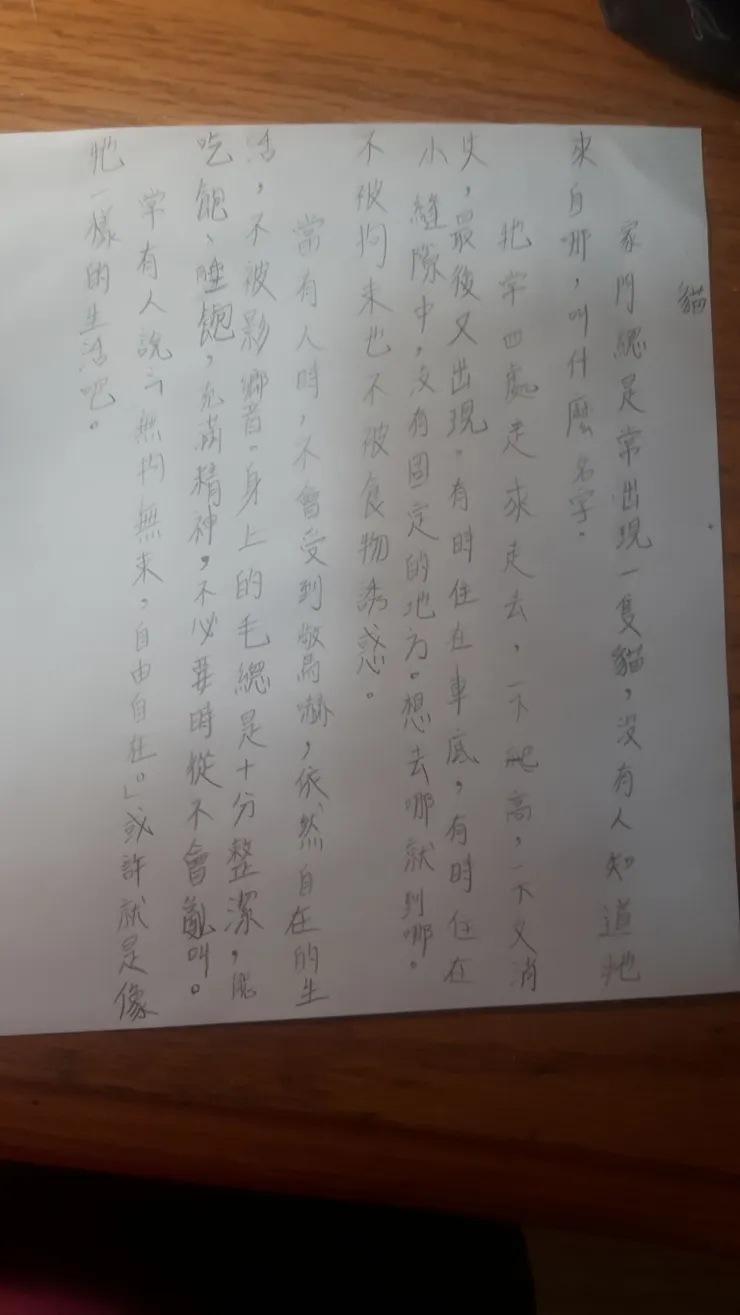 貓
家門總是常出現一隻貓，沒有人知道牠
來自哪，叫什麼名字。
牠常四處走來走去，一下爬高，一下又消
失，最後又出現。有時住在車底，有時住在
小縫隙中，沒有固定的地方。想去哪就到哪。
不被拘束也不被食物誘惑。
當有人時，不會受到驚嚇，依然自在的生
活，不被影響。身上的毛總是十分整潔，能
吃飽、睡飽，充滿精神，不必要時從不會亂叫。
常有人說：「無拘無束，自由自在。」或許就是像
牠一樣的生活吧。